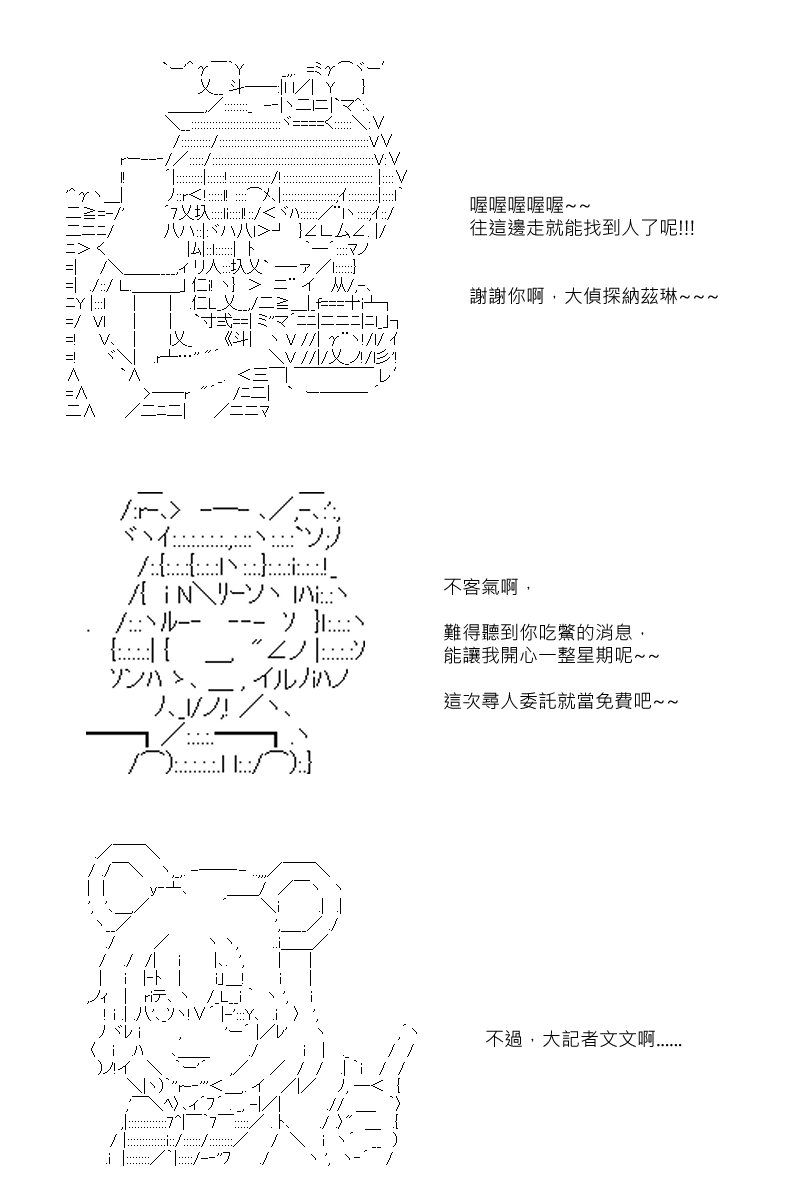 喔喔喔喔喔~~
往這邊走就能找到人了呢!!!
謝謝你啊，大偵探納茲琳~~~
不客氣啊，
難得聽到你吃鱉的消息，
能讓我開心一整星期呢~~
這次尋人委託就當免費吧~~
不過，大記者文文啊......